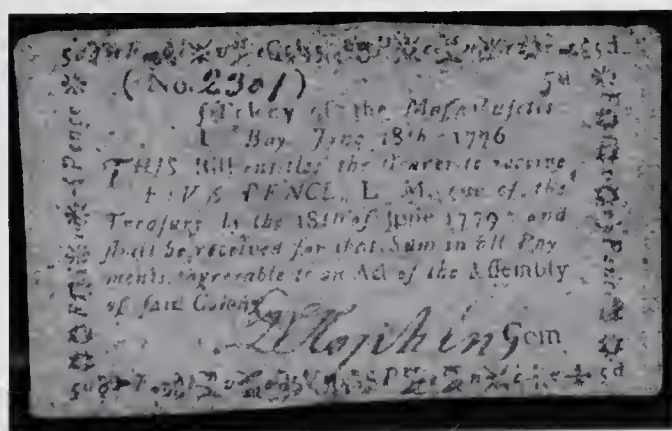 5d 5d
(No. 2301) 5d
Colony of the Massachusetts
Bay, June 18th 1776
THIS Bill entitles the Bearer to receive
FIVE PENCE, L. M. out of the
Treasury by the 18th of June 1779 and
shall be received for that Sum in all Pay
ments, agreeable to an Act of the Assembly
of said Colony
Hopkins Com
5d 5d
Pence